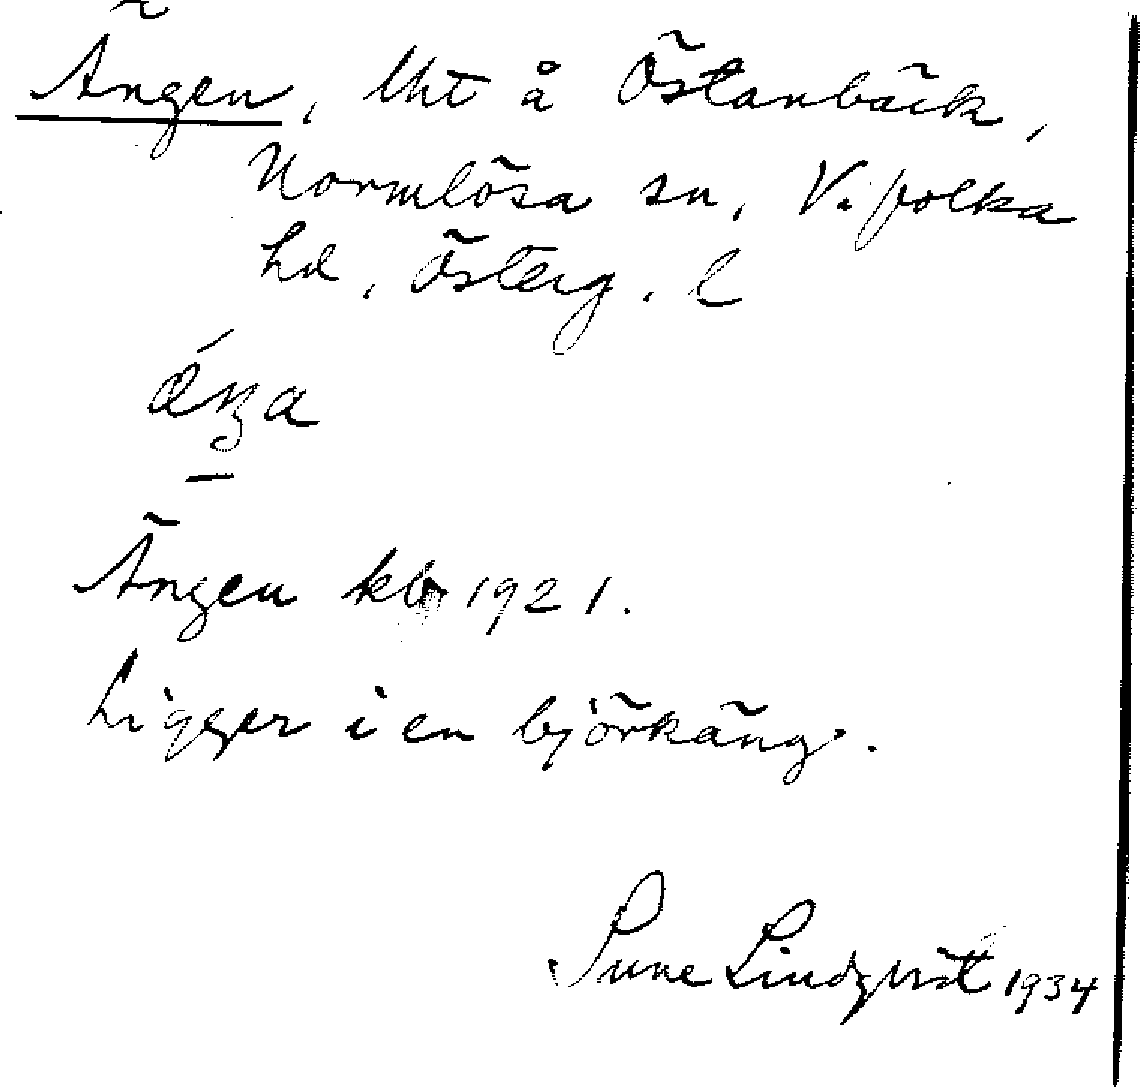 Ängen, lht å Östanbäck,
Normlösa sn, Vifolka
hd, Österg. l
Ängen kb 1921.
Ligger i en björkäng.
Sune Lindqvist 1934